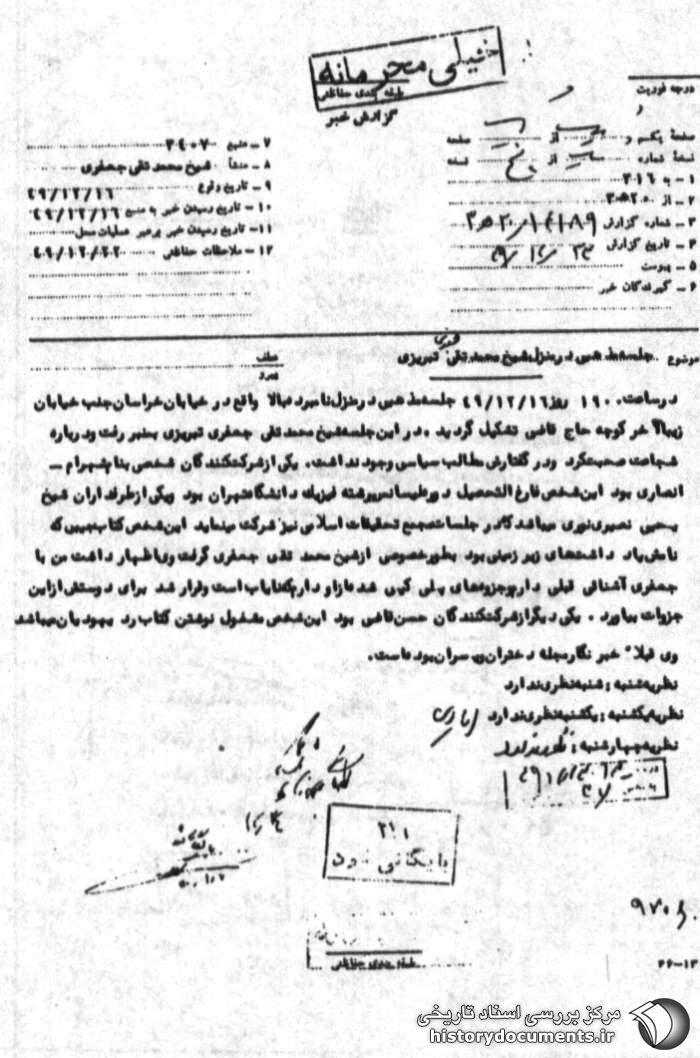 خیلی محرمانه
طبقه بندی حفاظتی
گزارش خبر
درجه فوریت
صفحه یکم و از صفحه
نسخه شماره از پنج نسخه
۱ - به ۳۱۶
۲ - از
۳ - شماره گزارش
۴ - تاریخ گزارش
۵ - پیوست
۶ - گیرندگان خبر
۷ - منبع ۳۴۰۷
۸ - منشأ شیخ محمد تقی جعفری
۹ - تاریخ وقوع ۴۹/۱۲/۱۶
۱۰ - تاریخ رسیدن خبر به منبع ۴۹/۱۲/۱۶
۱۱ - تاریخ رسیدن خبر برهبر عملیات محل
۱۲ - ملاحظات حفاظتی
موضوع جلسه مذهبی در منزل شیخ محمد تقی جعفری تبریزی
عطف
پیرو
در ساعت ۱۹۰۰ روز ۴۹/۱۲/۱۶ جلسه مذهبی در منزل نامبرده بالا واقع در خیابان خراسان جنب خیابان
زیبا آخر کوچه حاج قاضی تشکیل گردید . در این جلسه شیخ محمد تقی جعفری تبریزی بمنبر رفت و درباره
شجاعت صحبت کرد و در گفتارش مطالب سیاسی وجود نداشت . یکی از شرکت کنندگان شخصی بنام شهرام -
انصاری بود این شخص فارغ التحصیل دوره لیسانس رشته فیزیک دانشگاه تهران بود و یکی از طرفداران شیخ
یحیی نصیری نوری میباشد که در جلسات مجمع تحقیقات اسلامی نیز شرکت مینماید این شخص کتاب جیبی که
نامش یادداشتهای زیرزمینی بود بطور خصوصی از شیخ محمد تقی جعفری گرفت وی اظهار داشت من با
جعفری آشنائی قبلی دارم و جزوه های پلی کپی شده از او دارم که نایاب است و قرار شد برای دوستش از این
جزوات بیاورد . یکی دیگر از شرکت کنندگان حسن قاضی بود این شخص مشغول نوشتن کتاب رد یهودیان میباشد
وی قبلا خبرنگار مجله دختران و پسران بوده است .
نظریه شنبه : شنبه نظری ندارد
نظریه یکشنبه : یکشنبه نظری ندارد
نظریه چهارشنبه : نظری ندارد
بایگانی شود
طبقه بندی حفاظتی
۲۶-۱۳
مرکز بررسی اسناد تاریخی
historydocuments.ir